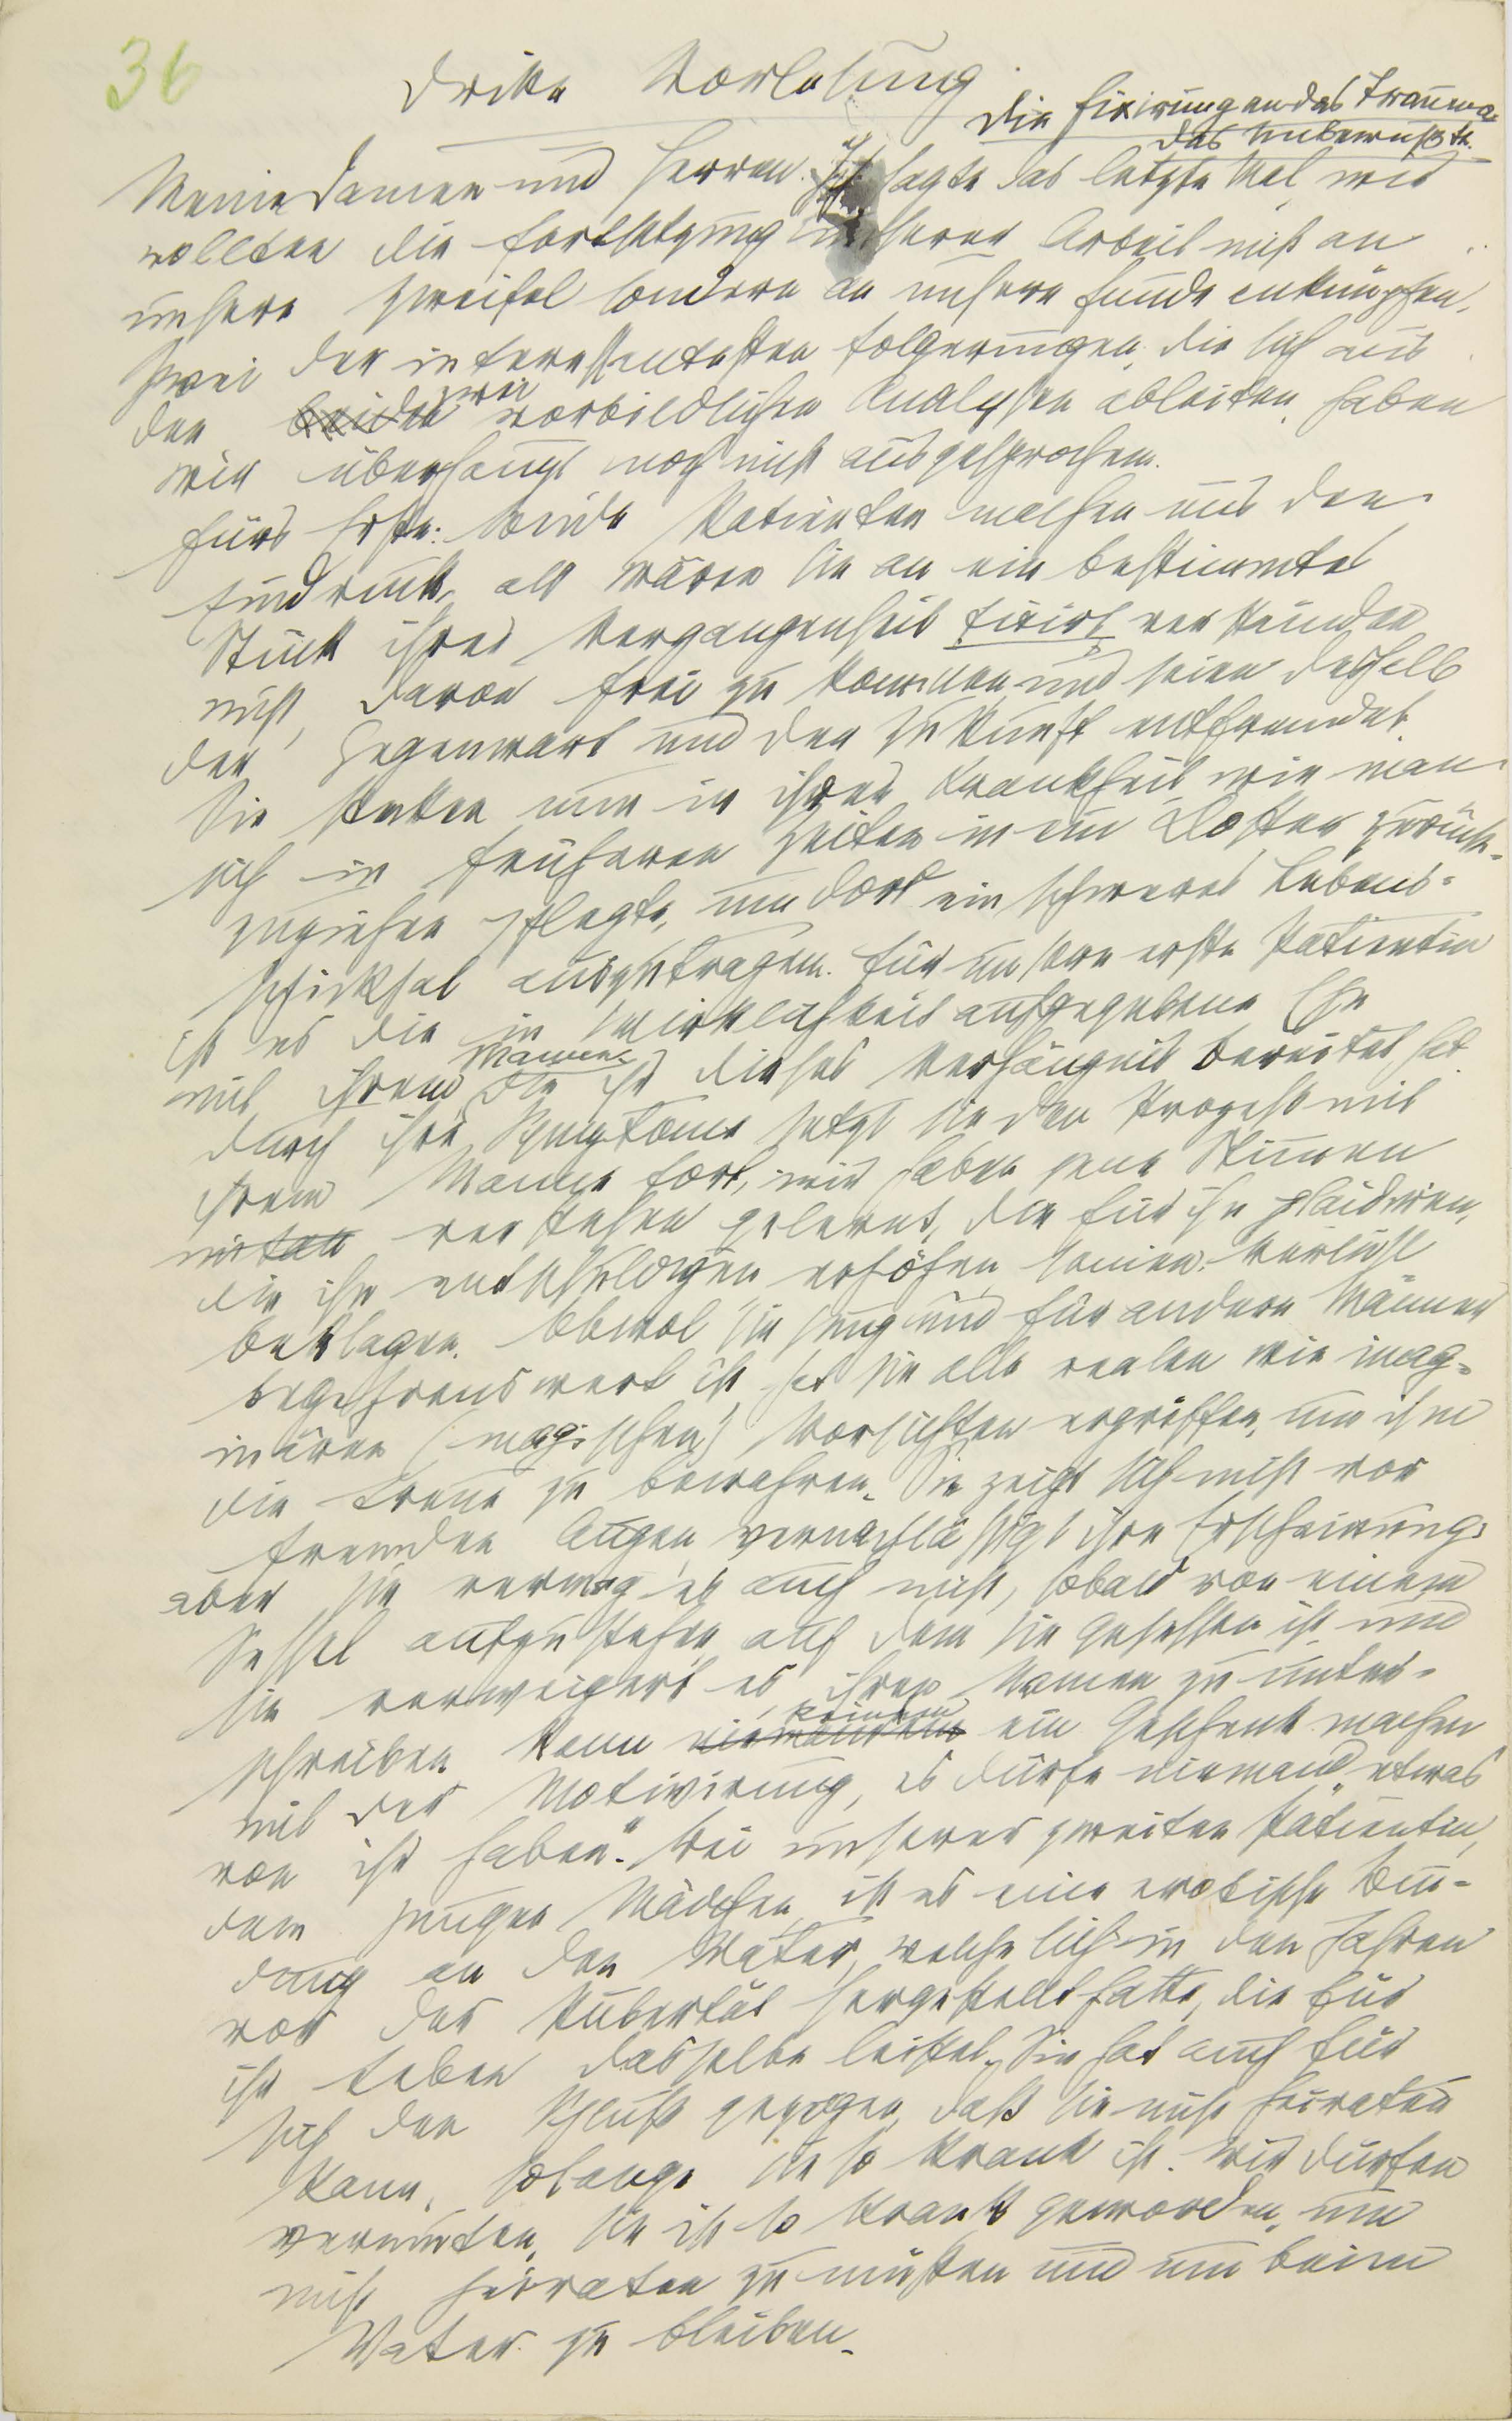 36
Dritte Vorlesung
Die Fixirung an das Trauma.
das Unbewußte.
Meine Damen und Herren. Ich sagte das letzte Mal, wir
wollten die Fortsetzung unserer Arbeit nicht an
unsere Zweifel sondern an unsere Funde anknüpfen.
Zwei der interessantesten Folgerungen, die sich aus
den beiden zwei vorbildlichen Analysen ableiten, haben
wir überhaupt noch nicht ausgesprochen.
Fürs Erste: Beide Patienten machen uns den
Eindruck, als wären sie an ein bestimmtes
Stück ihrer Vergangenheit fixirt, verstünden
nicht, davon frei zu kommen und seien deshalb
der Gegenwart und der Zukunft entfremdet.
Sie stecken nun in ihrer Krankheit, wie man
sich in früheren Zeiten in ein Kloster zurück-
zuziehen pflegte, um dort ein schweres Lebens-
schicksal auszutragen. Für unsere erste Patientin
ist es die in Wirklichkeit aufgegebene Ehe
mit ihrem Manne, die ihr dieses Verhängnis bereitet hat.
Durch ihre Symptome setzt sie den Prozeß mit
ihrem Manne fort, wir haben jene Stimmen
verstehen gelernt, die für ihn plaidiren,
die ihn entschuldigen, erhöhen, seinen Verlust
beklagen. Obwol sie jung und für andere Männer
begehrenswert ist, hat sie alle realen wie imag-
inären (magischen) Vorsichten ergriffen, um ihm
die Treue zu bewahren. Sie zeigt sich nicht vor
fremden Augen, vernachlässigt ihre Erscheinung,
aber sie vermag es auch nicht, sobald von einem
Sessel aufzustehen, auf dem sie gesessen ist und
sie verweigert es, ihren Namen zu unter-
schreiben, kann niemandem keinem ein Geschenk machen
mit der Motivirung, es dürfe niemand „etwas
von ihr haben“. Bei unserer zweiten Patientin,
dem jungen Mädchen, ist es eine erotische Bin-
dung an den Vater, welche sich in den Jahren
vor der Pubertät hergestellt hatte, die für
ihr Leben dasselbe leistet. Sie hat auch für
sich den Schluß gezogen, daß sie nicht heiraten
kann, solange sie so krank ist. Wir dürfen
vermuten, sie ist so krank geworden, um
nicht heiraten zu müssen und um beim
Vater zu bleiben.